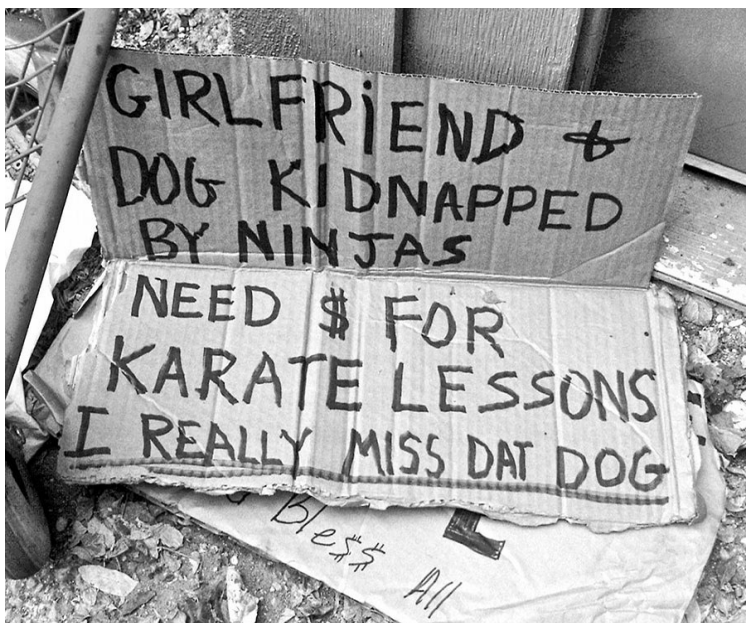 GIRLFRiEND &
DOG KIDNAPPED
BY NINJAS
NEED $ FOR
KARATE LESSONS
I REALLY MISS DAT DOG
Ble$$ All